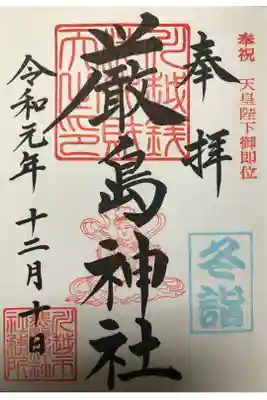 奉祝 天皇陛下御即位
奉拝
冬詣
厳島神社
令和元年 十二月 十日